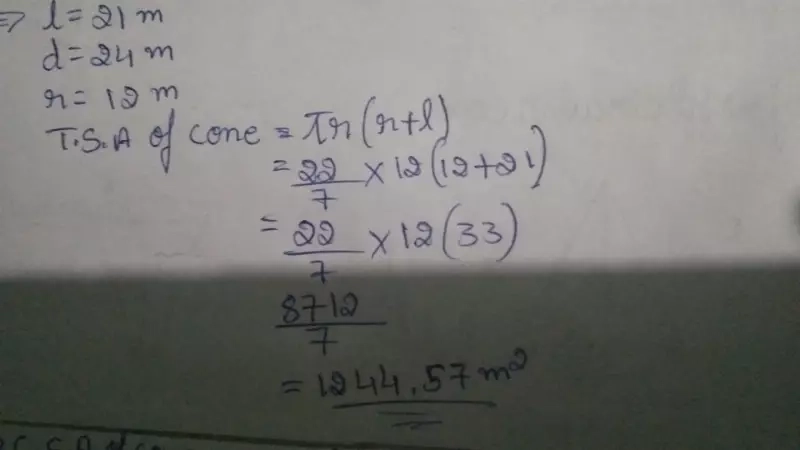 ⇒ l = 21 m
d = 24 m
r = 12 m
T.S.A of cone = πr(r+l)
= 22/7 × 12(12+21)
= 22/7 × 12(33)
8712/7
= 1244.57 m²